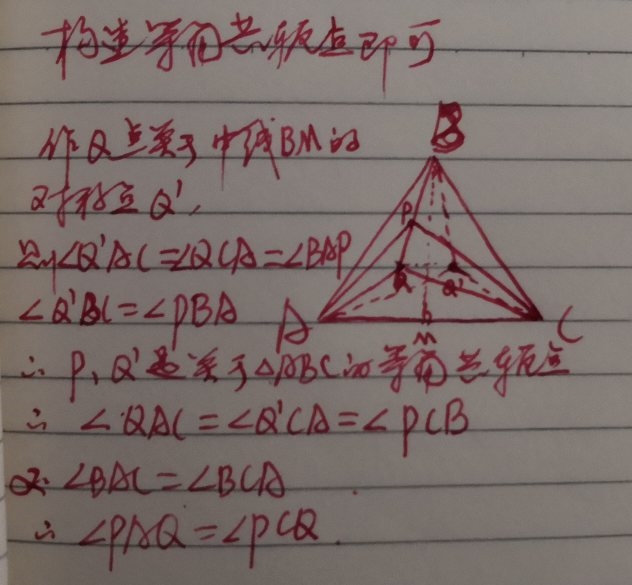 构造等角共轭点即可
作Q点关于中线BM的
对称点Q',
则∠Q'AC=∠QCA=∠BAP
∠Q'BC=∠PBA
∴ P、Q'是关于△ABC的等角共轭点
∴ ∠QAC=∠Q'CA=∠PCB
又∵∠BAC=∠BCA
∴ ∠PAQ=∠PCQ.
B
P
Q
Q'
A
M
C